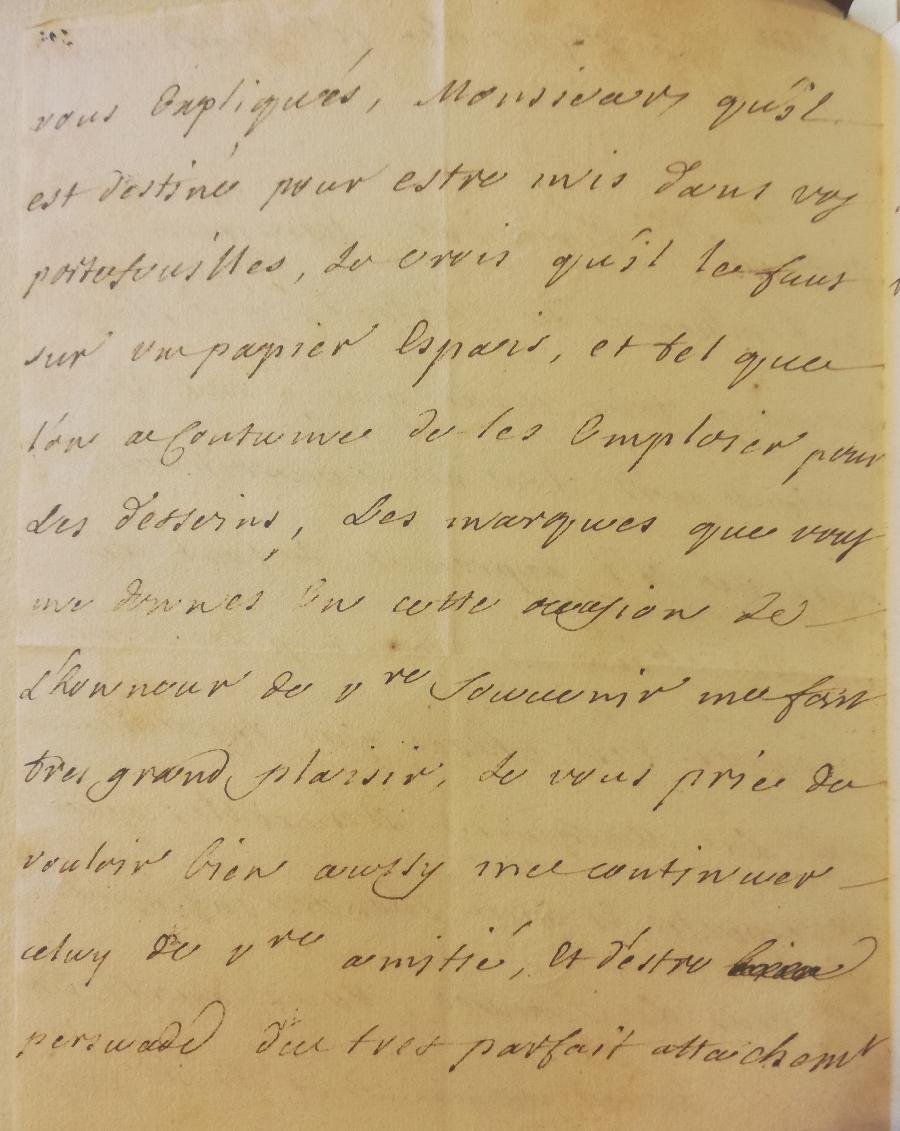 vous Expliqués, Monsieur, qu'il
est destiné pour estre mis dans vos
portefeuilles, Je crois qu'il le faut
sur un papier Espais, et tel que
l'on a Coutume de les Emploier pour
Les desseins, Les marques que vous
me donnés En cette occasion de
L'honneur de vre Souvenir me font
tres grand plaisir, Je vous prie de
vouloir bien aussy me continuer
celuy de vre amitié, Et d'estre
persuadé du tres parfait attachemt